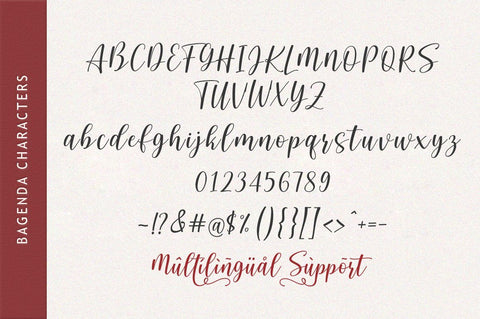 BAGENDA CHARACTERS
ABCDEFGHIJKLMNOPQRS
TUVWXYZ
abcdefghijklmnopqrstuvwxyz
0123456789
~!?&#@$%(){}[]<>^+=-
Mûltílíñgüål Sùppôrt